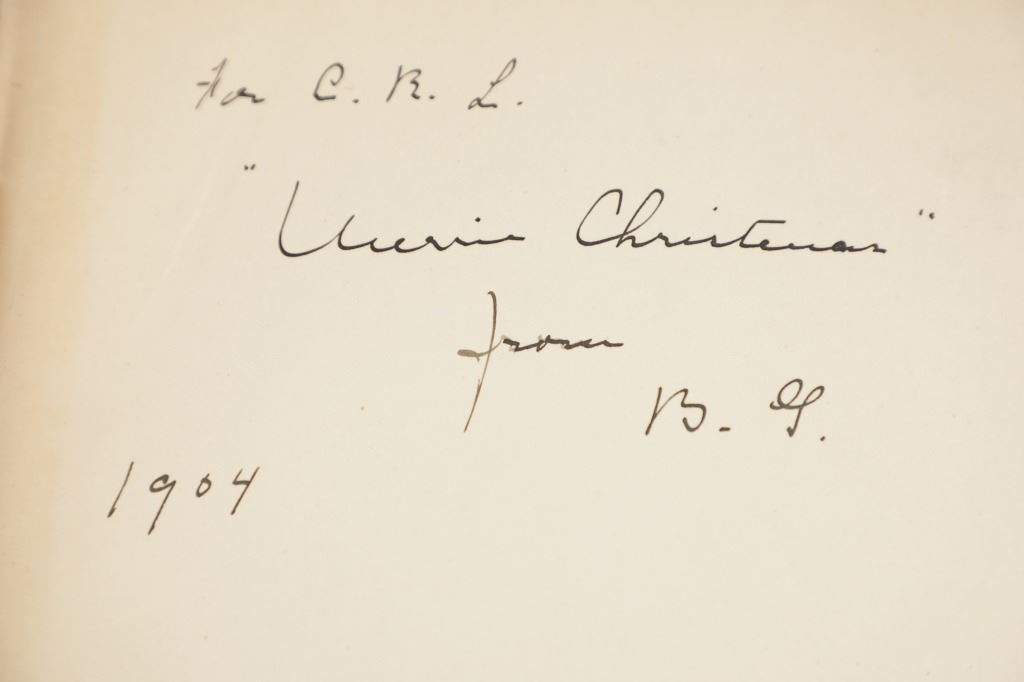 For C. R. L.
"Merrie Christmas"
from
B. G.
1904